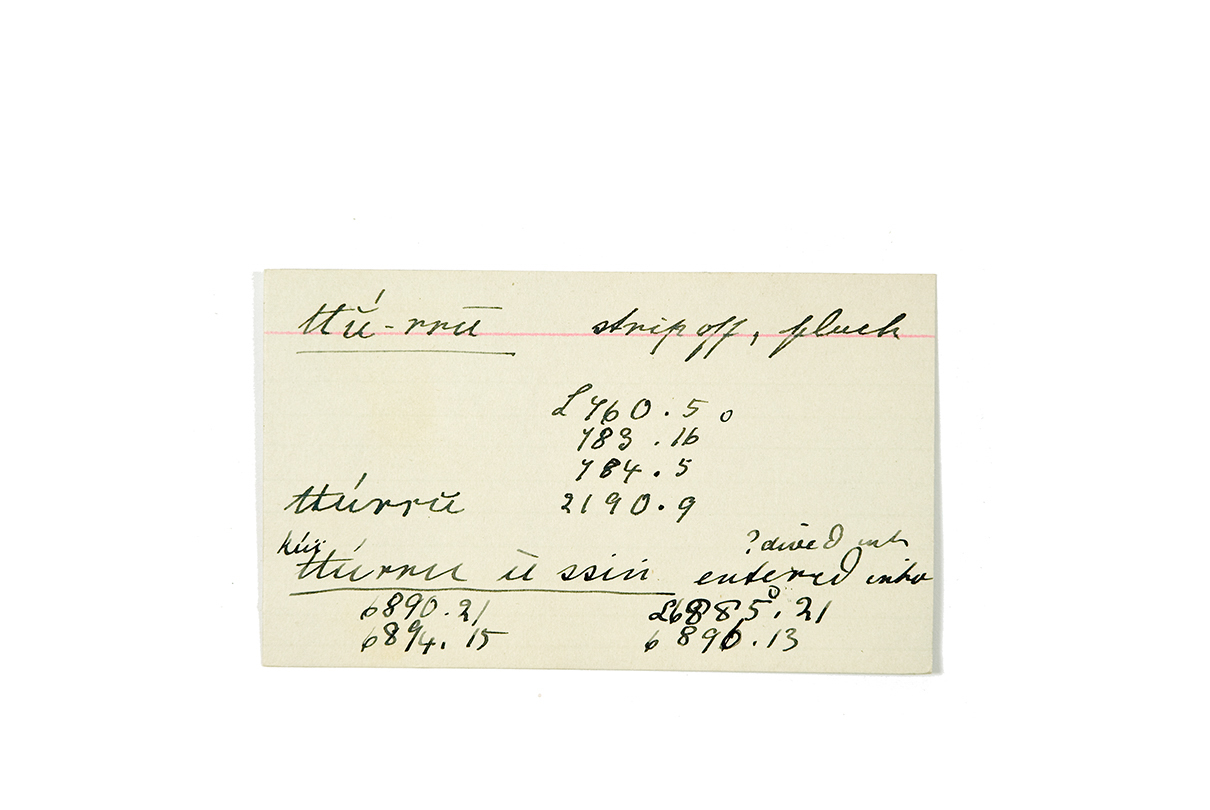 ttŭ́-rrū strip off, pluck
L 760.5 o
783.16
784.5
ttúrrŭ 2190.9
? dived
ttúrru ŭ ssin entered into
6890.21 L 6885.21
6894.15 6896.13